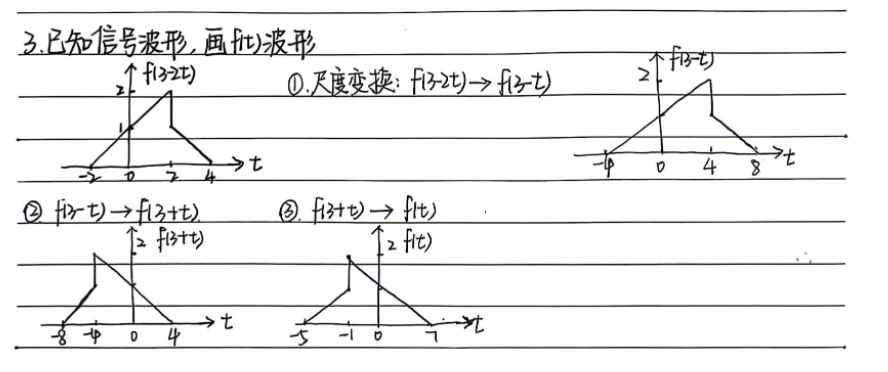 3.已知信号波形,画f(t)波形
f(3-2t)
2
1
-2 0 2 4 t
①.尺度变换: f(3-2t)→f(3-t)
f(3-t)
2
-4 0 4 8 t
② f(3-t)→f(3+t).
2 f(3+t)
-8 -4 0 4 t
③. f(3+t)→f(t)
2 f(t)
-5 -1 0 7 t